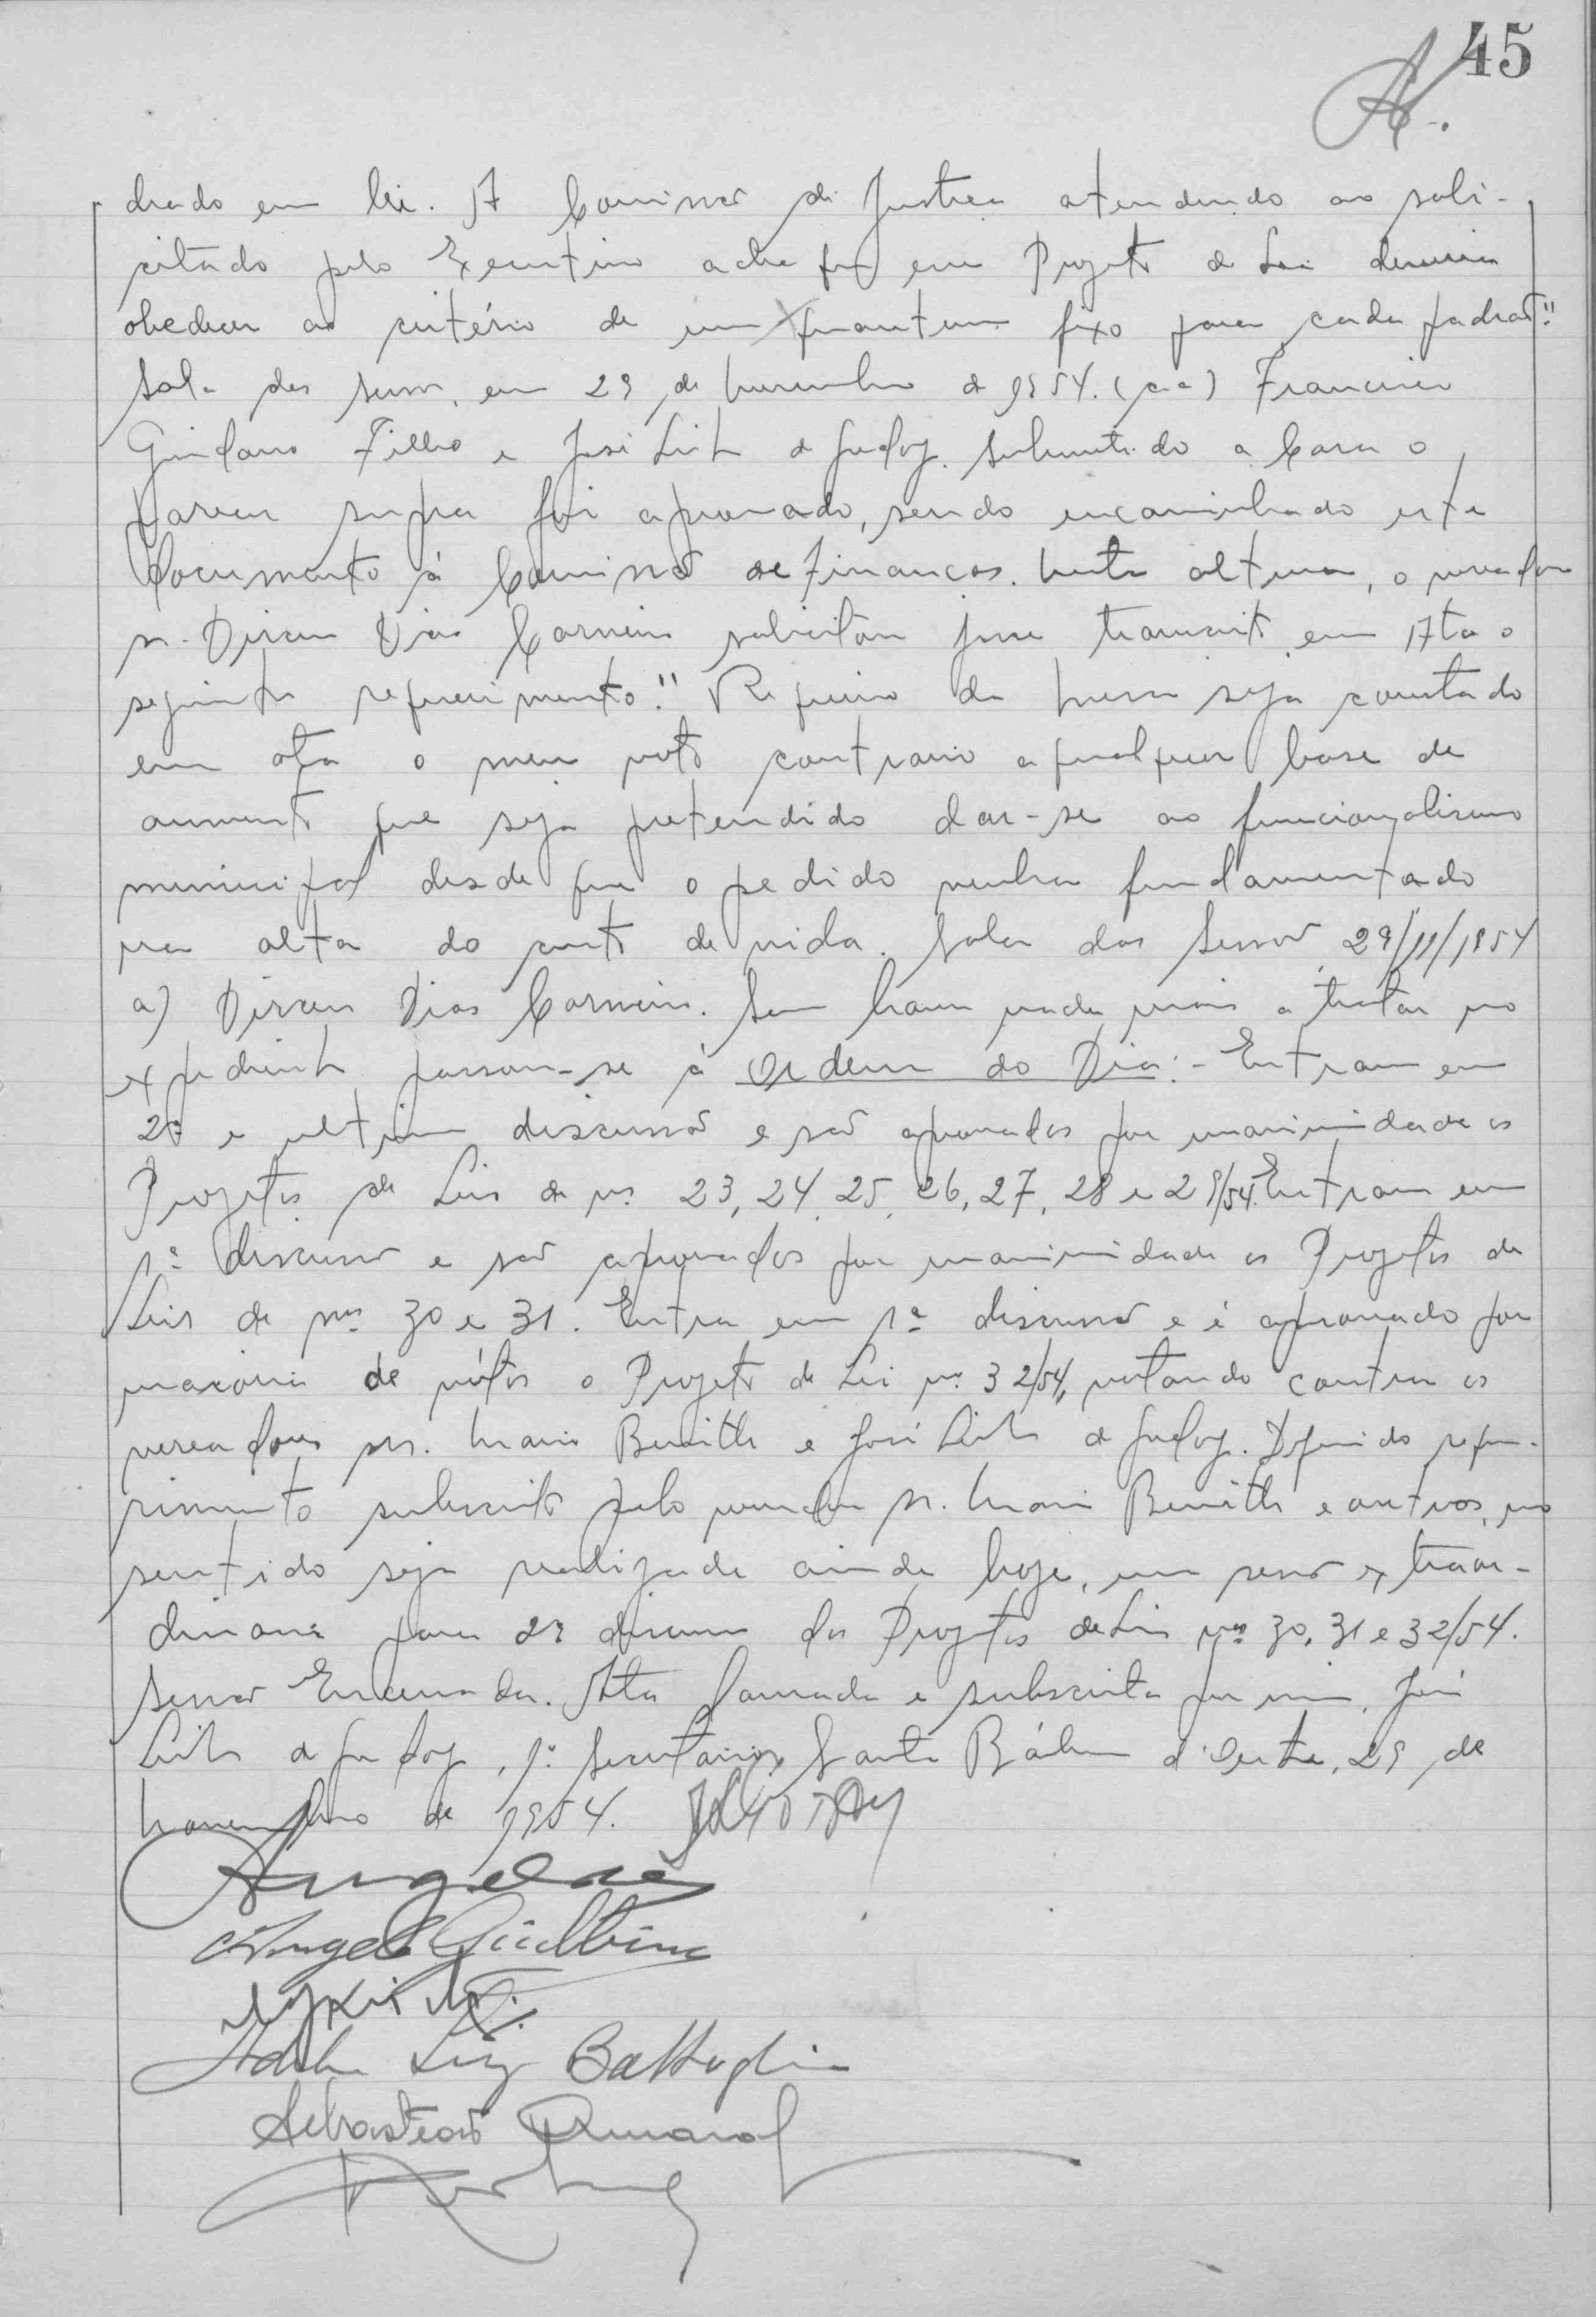 45
drado em lei. A Comissão de Justiça atendendo ao soli-
citado pelo Executivo acha que em Projeto de Lei deveria
obedecer ao critério de um quantum fixo para cada padrão".
Sala das sessões, em 29 de novembro de 1954. (aa) Francisco
Filho e José Leite de Godoy. Submetido a Casa o
parecer supra foi aprovado, sendo encaminhado este
documento à Comissão de Finanças. Nesta altura, o vereador
sr. Dirceu Dias Carneiro solicitou fosse transcrito em Ata o
seguinte requerimento: "Requeiro da mesa seja constado
em ata o meu voto contrario a qualquer base de
aumento que seja pretendido dar-se ao funcionalismo
municipal desde que o pedido venha fundamentado
na alta do custo de vida. Sala das Sessões 29/11/1954
a) Dirceu Dias Carneiro. Sem haver nada mais a tratar no
expediente passou-se à Ordem do Dia:- Entram em
2ª e ultima discussão e são aprovados por unanimidade os
Projetos de Leis de nºs 23, 24, 25, 26, 27, 28 e 29/54. Entram em
1ª discussão e são aprovados por unanimidade os Projetos de
Leis de nºs 30 e 31. Entra em 1ª discussão e é aprovado por
maioria de vótos o Projeto de Lei nº 32/54, votando contra os
vereadores srs. Mario Benith e José Leite de Godoy. Deferido reque-
rimento subscrito pelo vereador sr. Mario Benith e outros, no
sentido seja realizada ainda hoje, uma sessão extraor-
dinaria para 2ª discussão dos Projetos de Leis nºs 30, 31 e 32/54.
Sessão Encerrada. Ata lavrada e subscrita por mim, José
Leite de Godoy, 1º Secretario, Santa Bárbara d'Oeste, 29 de
novembro de 1954.
Angelo
Luiz Battaglia
Sebastião Amaral